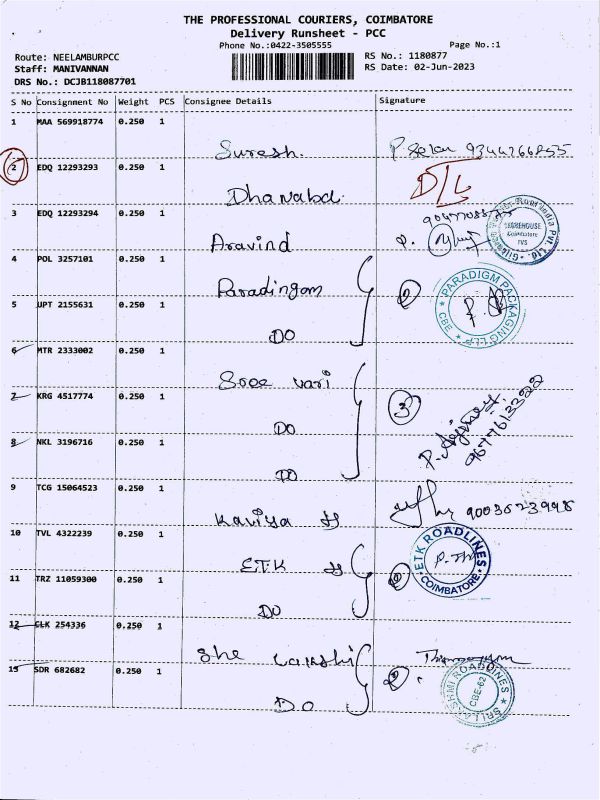 THE PROFESSIONAL COURIERS, COIMBATORE
Delivery Runsheet - PCC
Phone No.:0422-3505555
Page No.:1
Route: NEELAMBURPCC
RS No.: 1180877
Staff: MANIVANNAN
RS Date: 02-Jun-2023
DRS No.: DCJB118087701
S No Consignment No Weight PCS Consignee Details Signature
1 MAA 569918774 0.250 1
Suresh.
2 EDQ 12293293 0.250 1
D/L
3 EDQ 12293294 0.250 1
Aravind
WAREHOUSE
Coimbatore
TVS
4 POL 3257101 0.250 1
PARADIGM PACKAGING LLP
CBE
5 UPT 2155631 0.250 1
DO
6 MTR 2333002 0.250 1
Sree vari
7 KRG 4517774 0.250 1
DO
3
8 NKL 3196716 0.250 1
DO
9677613322
9 TCG 15064523 0.250 1
Kaviya
10 TVL 4322239 0.250 1
ETK
ETK ROADLINES
COIMBATORE
11 TRZ 11059300 0.250 1
DO
12 CLK 254336 0.250 1
13 SDR 682682 0.250 1
DO
SRI LAKSHMI ROADLINES
CBE-62